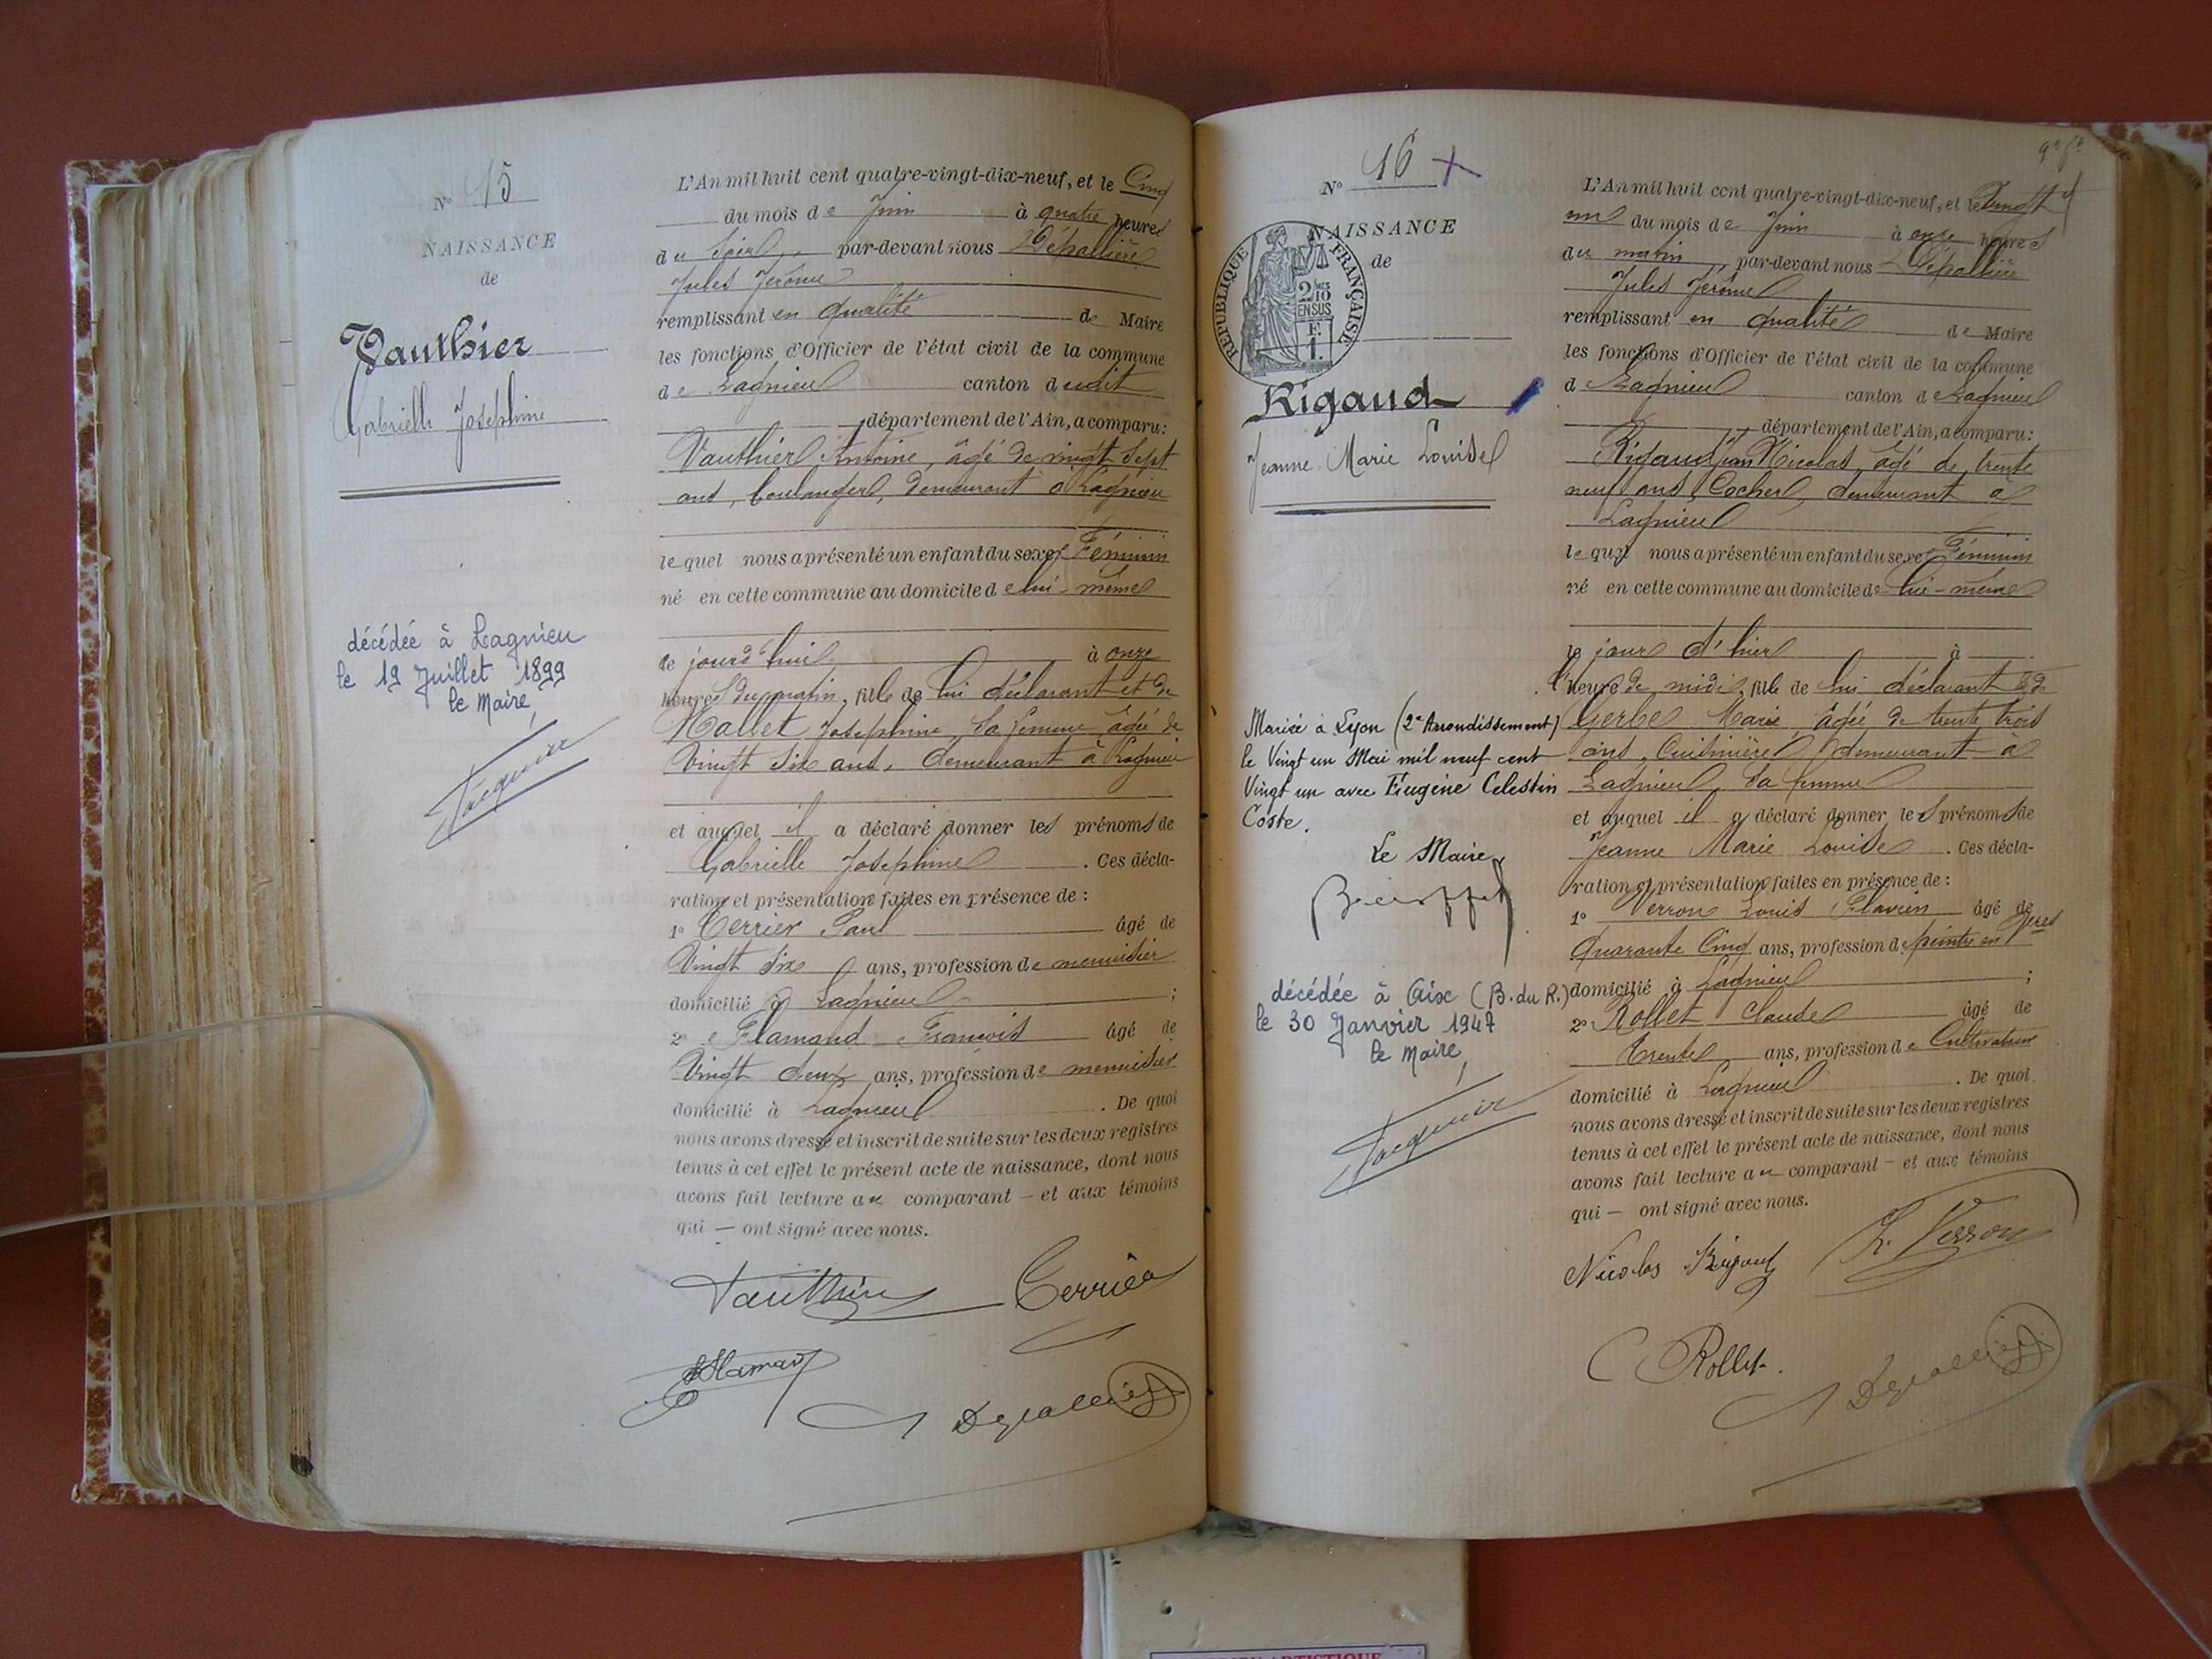 N° 15
NAISSANCE
de
Vauthier
Gabrielle Josephine
décédée à Lagnieu
le 19 Juillet 1899
le Maire,
Jacquier
L'An mil huit cent quatre-vingt-dix-neuf, et le Cinq
du mois de Juin à quatre heures
du soir, par-devant nous Dépallière
Jules Jérôme
remplissant en qualité de Maire
les fonctions d'Officier de l'état civil de la commune
de Lagnieu canton dudit
département de l'Ain, a comparu:
Vauthier Antoine, âgé de vingt sept
ans, boulanger, demeurant à Lagnieu
lequel nous a présenté un enfant du sexe Féminin
né en cette commune au domicile de lui-même
le jourd'hui à onze
heures du matin, fille de lui déclarant et de
Mallet Josephine, sa femme âgée de
Vingt six ans, demeurant à Lagnieu
et auquel il a déclaré donner les prénoms de
Gabrielle Josephine. Ces décla-
ration et présentation faites en présence de:
1° Terrier Paul âgé de
Vingt six ans, profession de menuisier
domicilié à Lagnieu;
2° Flamand Francois âgé de
Vingt deux ans, profession de menuisier
domicilié à Lagnieu. De quoi
nous avons dressé et inscrit de suite sur les deux registres
tenus à cet effet le présent acte de naissance, dont nous
avons fait lecture au comparant - et aux témoins
qui - ont signé avec nous.
Vauthier Terrier
Flamand
Depallière
N° 16
NAISSANCE
de
RÉPUBLIQUE FRANÇAISE
2/10 MES
EN SUS
F.
1.
Rigaud
Jeanne Marie Louise
Mariée à Lyon (2e Arrondissement)
le Vingt un Mai mil neuf cent
Vingt un avec Eugène Celestin
Coste.
Le Maire,
décédée à Aix (B. du R.)
le 30 Janvier 1947
le Maire,
Jacquier
L'An mil huit cent quatre-vingt-dix-neuf, et le Vingt
un du mois de Juin à onze heures
du matin, par-devant nous Dépallière
Jules Jérôme
remplissant en qualité de Maire
les fonctions d'Officier de l'état civil de la commune
d Lagnieu canton de Lagnieu
département de l'Ain, a comparu:
Rigaud Jean Nicolas, âgé de trente
neuf ans, Cocher, demeurant à
Lagnieu
lequel nous a présenté un enfant du sexe Féminin
né en cette commune au domicile de lui-même
le jour d'hier à
l'heure de midi, fille de lui déclarant & de
Gerbe Marie âgée de trente trois
ans, Cuisinière, demeurant à
Lagnieu, sa femme
et auquel il a déclaré donner les prénoms de
Jeanne Marie Louise. Ces décla-
ration et présentation faites en présence de:
1° Verron Louis Flavien âgé de
Quarante Cinq ans, profession de peintre en
domicilié à Lagnieu;
2° Rollet Claude âgé de
Trente ans, profession de Cultivateur
domicilié à Lagnieu. De quoi
nous avons dressé et inscrit de suite sur les deux registres
tenus à cet effet le présent acte de naissance, dont nous
avons fait lecture au comparant - et aux témoins
qui - ont signé avec nous.
Nicolas Rigaud L. Verron
C Rollet
Depallière